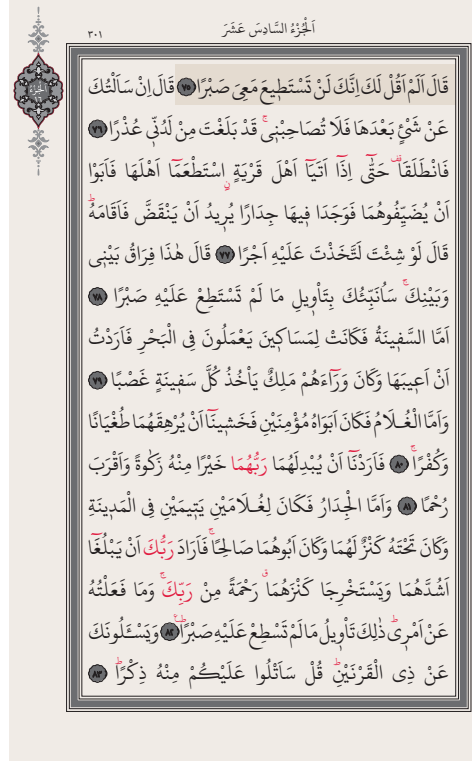 ٣٠١
اَلْجُزْءُ السَّادِسَ عَشَرَ
قَالَ اَلَمْ اَقُلْ لَكَ اِنَّكَ لَنْ تَسْتَط۪يعَ مَعِيَ صَبْرًا ﴿٧٥﴾ قَالَ اِنْ سَاَلْتُكَ
عَنْ شَيْءٍ بَعْدَهَا فَلَا تُصَاحِبْن۪يۚ قَدْ بَلَغْتَ مِنْ لَدُنّ۪ي عُذْرًا ﴿٧٦﴾
فَانْطَلَقَا۠ حَتّٰٓى اِذَٓا اَتَيَٓا اَهْلَ قَرْيَةٍۨ اسْتَطْعَمَٓا اَهْلَهَا فَاَبَوْا
اَنْ يُضَيِّفُوهُمَا فَوَجَدَا ف۪يهَا جِدَارًا يُر۪يدُ اَنْ يَنْقَضَّ فَاَقَامَهُۜ
قَالَ لَوْ شِئْتَ لَتَّخَذْتَ عَلَيْهِ اَجْرًا ﴿٧٧﴾ قَالَ هٰذَا فِرَاقُ بَيْن۪ي
وَبَيْنِكَۚ سَاُنَبِّئُكَ بِتَأْو۪يلِ مَا لَمْ تَسْتَطِعْ عَلَيْهِ صَبْرًا ﴿٧٨﴾
اَمَّا السَّف۪ينَةُ فَكَانَتْ لِمَسَاك۪ينَ يَعْمَلُونَ فِي الْبَحْرِ فَاَرَدْتُ
اَنْ اَع۪يبَهَا وَكَانَ وَرَٓاءَهُمْ مَلِكٌ يَأْخُذُ كُلَّ سَف۪ينَةٍ غَصْبًا ﴿٧٩﴾
وَاَمَّا الْغُلَامُ فَكَانَ اَبَوَاهُ مُؤْمِنَيْنِ فَخَش۪ينَٓا اَنْ يُرْهِقَهُمَا طُغْيَانًا
وَكُفْرًاۚ ﴿٨٠﴾ فَاَرَدْنَٓا اَنْ يُبْدِلَهُمَا رَبُّهُمَا خَيْرًا مِنْهُ زَكٰوةً وَاَقْرَبَ
رُحْمًا ﴿٨١﴾ وَاَمَّا الْجِدَارُ فَكَانَ لِغُلَامَيْنِ يَت۪يمَيْنِ فِي الْمَد۪ينَةِ
وَكَانَ تَحْتَهُ كَنْزٌ لَهُمَا وَكَانَ اَبُوهُمَا صَالِحًاۚ فَاَرَادَ رَبُّكَ اَنْ يَبْلُغَٓا
اَشُدَّهُمَا وَيَسْتَخْرِجَا كَنْزَهُمَاۗ رَحْمَةً مِنْ رَبِّكَۚ وَمَا فَعَلْتُهُ
عَنْ اَمْر۪يۜ ذٰلِكَ تَأْو۪يلُ مَا لَمْ تَسْطِعْ عَلَيْهِ صَبْرًاۜ۟ ﴿٨٢﴾ وَيَسْـَٔلُونَكَ
عَنْ ذِي الْقَرْنَيْنِۜ قُلْ سَاَتْلُوا عَلَيْكُمْ مِنْهُ ذِكْرًاۜ ﴿٨٣﴾